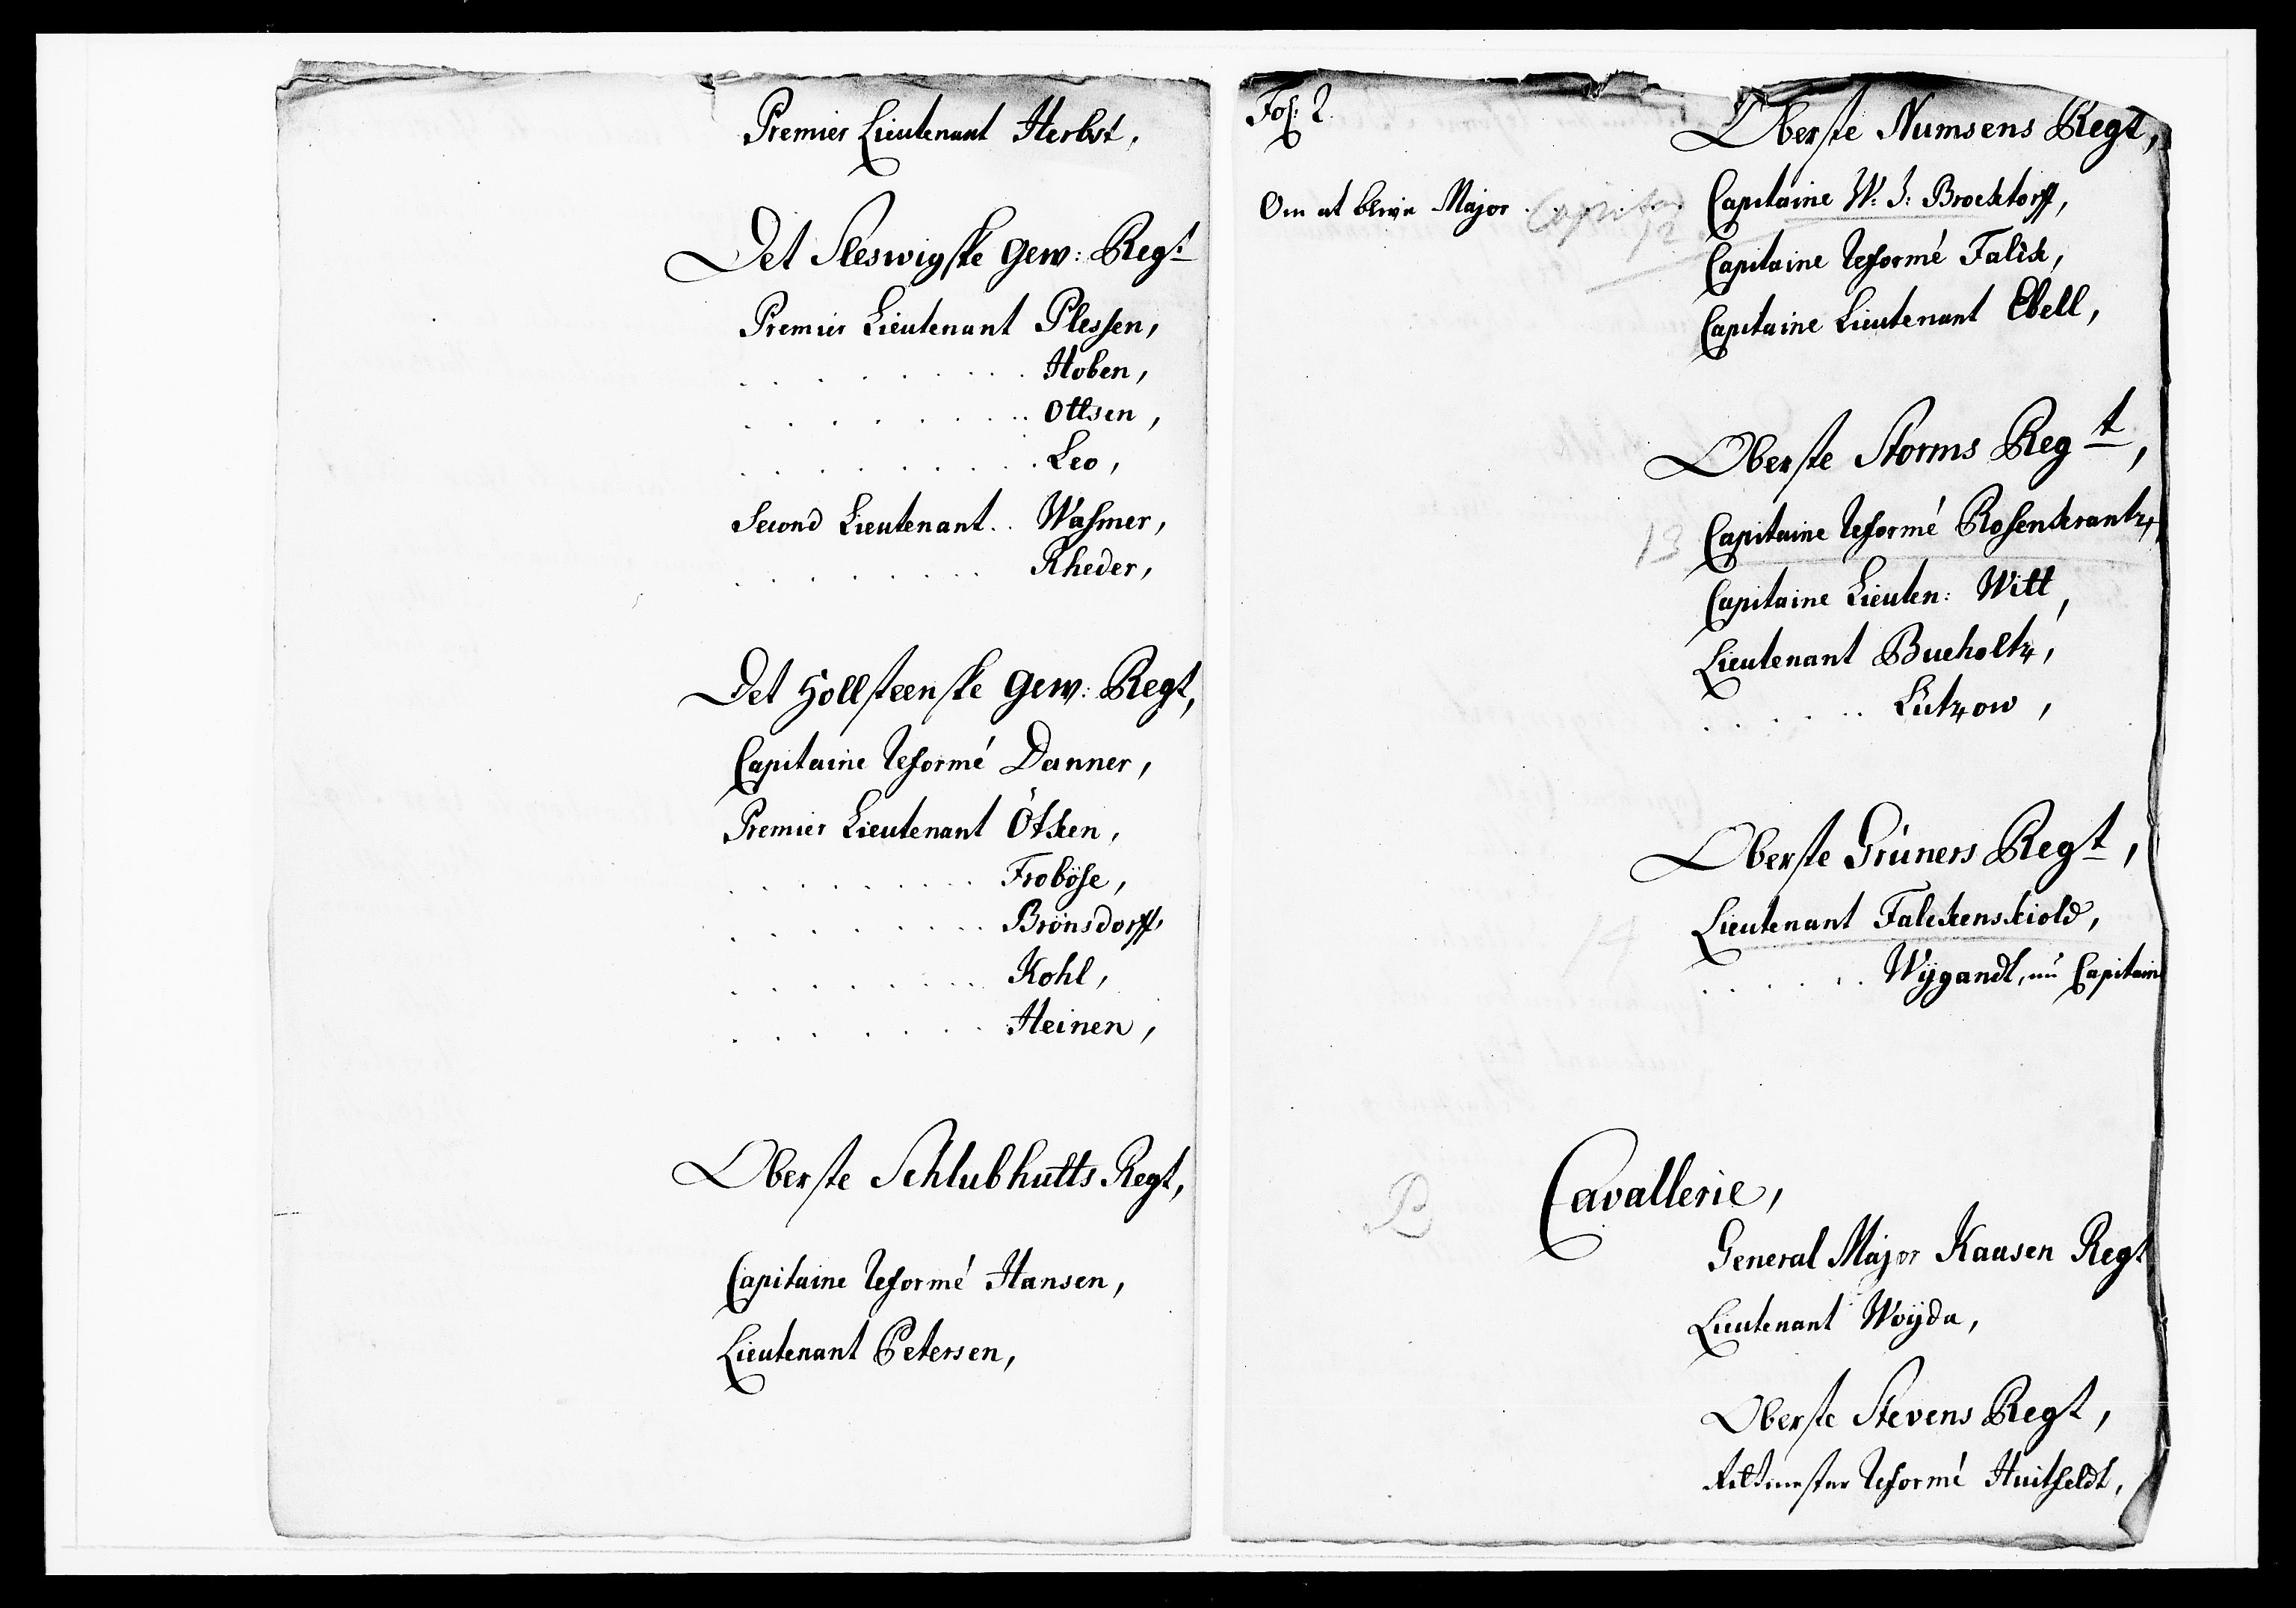 Premier Lieutenant Herbst,
Det Sleswigske Gew: Regt
Premier Lieutenant Plessen,
. . . . . . . . . Hoben,
. . . . . . . . . Ottsen,
. . . . . . . . . Leo,
Second Lieutenant . . Wasmer,
. . . . . . . . . Rheder,
Det Hollsteenske Gew: Regt,
Capitaine Reformé Danner,
Premier Lieutenant Ötken,
. . . . . . . . . Froböse,
. . . . . . . . . Brönsdorff,
. . . . . . . . . Kohl,
. . . . . . . . . Heinen,
Oberste Schlubhutts Regt,
Capitaine Reformé Hansen,
Lieutenant Petersen,
Fol: 2.
Oberste Numsens Regt,
Om at blive Major . . . . . Capitaine W: J: Brocktorff,
12
Capitaine Reformé Falck,
Capitaine Lieutenant Ebell,
Oberste Storms Regt,
13 Capitaine Reformé Rosenkrantz,
Capitaine Lieuten: Witt,
Lieutenant Bucholtz,
. . . . . . Lützow,
Oberste Grüners Regt,
14 Lieutenant Falckenskiold,
. . . . . . Wÿgandt, nu Capitain
Cavallerie,
General Major Kaasen Regt
Lieutenant Woÿda,
Oberste Stevens Regt,
Rittmester Reformé Huitfeldt,